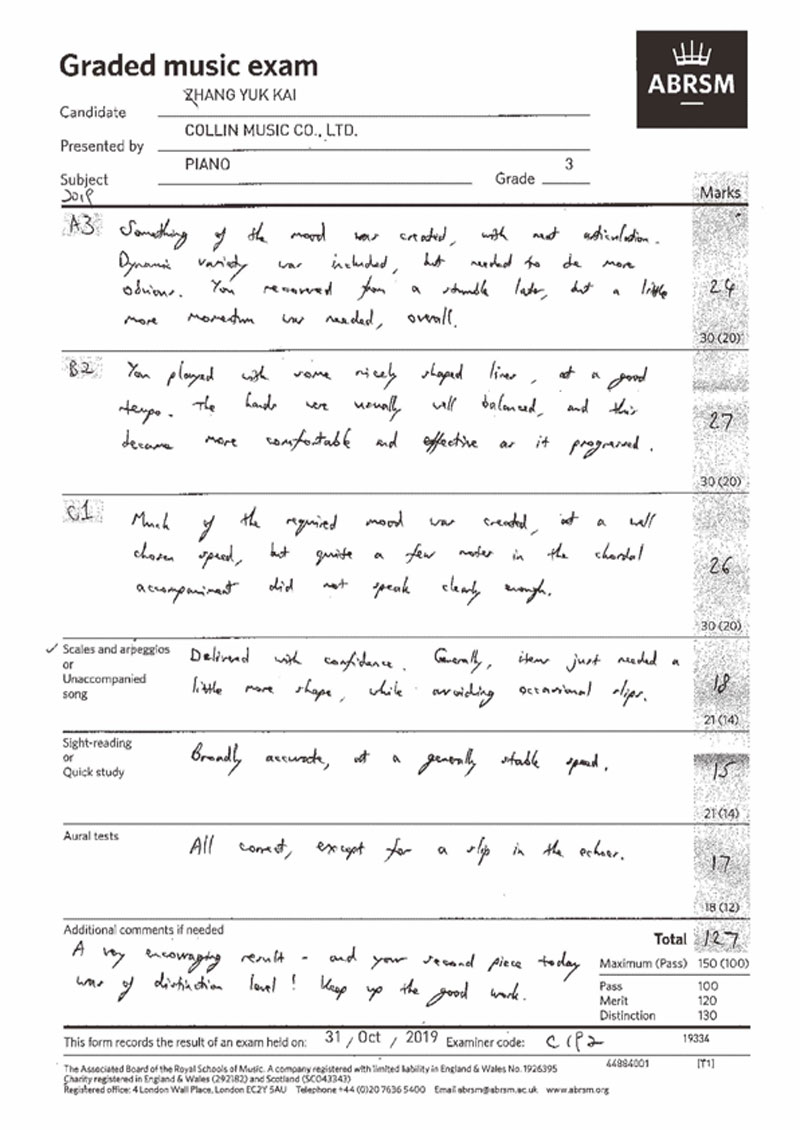 Graded music exam
ABRSM
Candidate ZHANG YUK KAI
Presented by COLLIN MUSIC CO., LTD.
Subject PIANO Grade 3
2019
Marks
A3 Something of the mood was created, with neat articulation.
Dynamic variety was included, but needed to be more
obvious. You recovered from a stumble later, but a little 24
more momentum was needed, overall.
30 (20)
B2 You played with some nicely shaped lines, at a good
tempo. The hands were usually well balanced, and this 27
became more comfortable and effective as it progressed.
30 (20)
C1 Much of the required mood was created, at a well
chosen speed, but quite a few notes in the chordal 26
accompaniment did not speak clearly enough.
30 (20)
✓ Scales and arpeggios Delivered with confidence. Generally, items just needed a
or
Unaccompanied little more shape, while avoiding occasional slips. 18
song
21 (14)
Sight-reading
or Broadly accurate, at a generally stable speed. 15
Quick study
21 (14)
Aural tests All correct, except for a slip in the echoes. 17
18 (12)
Additional comments if needed Total 127
A very encouraging result - and your second piece today
was of distinction level! Keep up the good work.
Maximum (Pass) 150 (100)
Pass 100
Merit 120
Distinction 130
This form records the result of an exam held on: 31 / Oct / 2019 Examiner code: 19334
44884001 [T1]
The Associated Board of the Royal Schools of Music. A company registered with limited liability in England & Wales No. 1926395
Charity registered in England & Wales (292182) and Scotland (SC043343)
Registered office: 4 London Wall Place, London EC2Y 5AU Telephone +44 (0)20 7636 5400 Email abrsm@abrsm.ac.uk www.abrsm.org